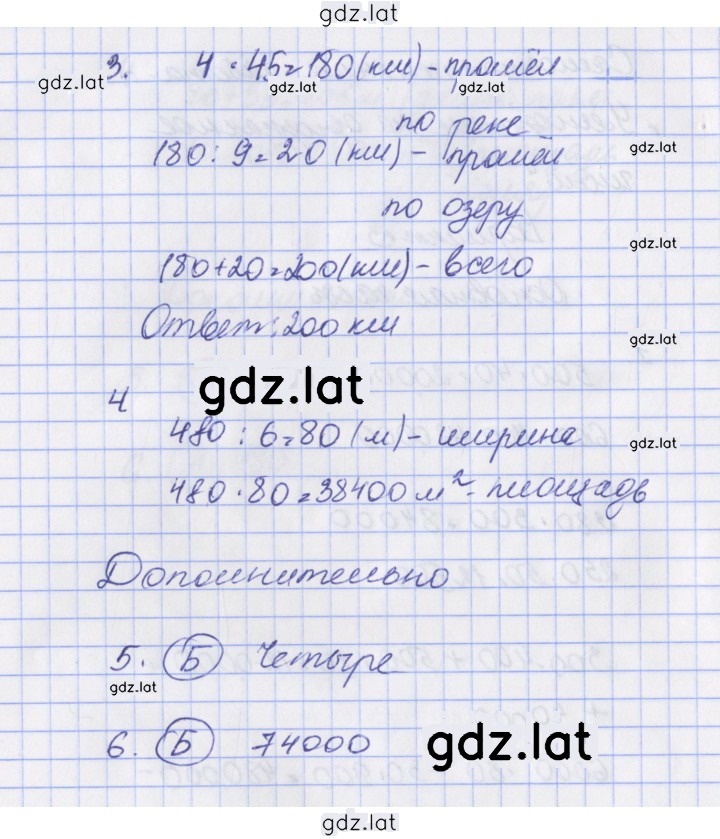 gdz.lat
3. 4 · 45 = 180 (км) - прошёл
gdz.lat
gdz.lat
gdz.lat
по реке
180 : 9 = 20 (км) - прошёл
gdz.lat
по озеру
gdz.lat
180 + 20 = 200 (км) - всего
Ответ: 200 км
gdz.lat
gdz.lat
4
480 : 6 = 80 (м) - ширина
gdz.lat
480 · 80 = 38400 м² - площадь
Дополнительно
5. Б Четыре
gdz.lat
6. Б 74000
gdz.lat
gdz.lat